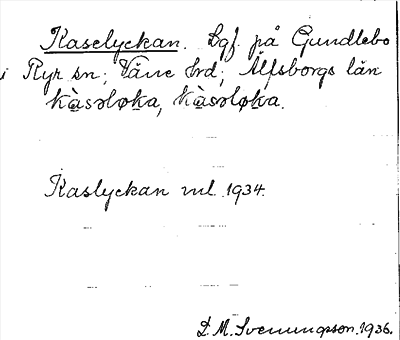 Kaselyckan. Lgf. på Gundlebo
i Ryr sn; Väne hrd; Älfsborgs län
kàsəløka, kàsəløka.
Kaslyckan ml. 1934.
D. M. Svenungsson. 1936.